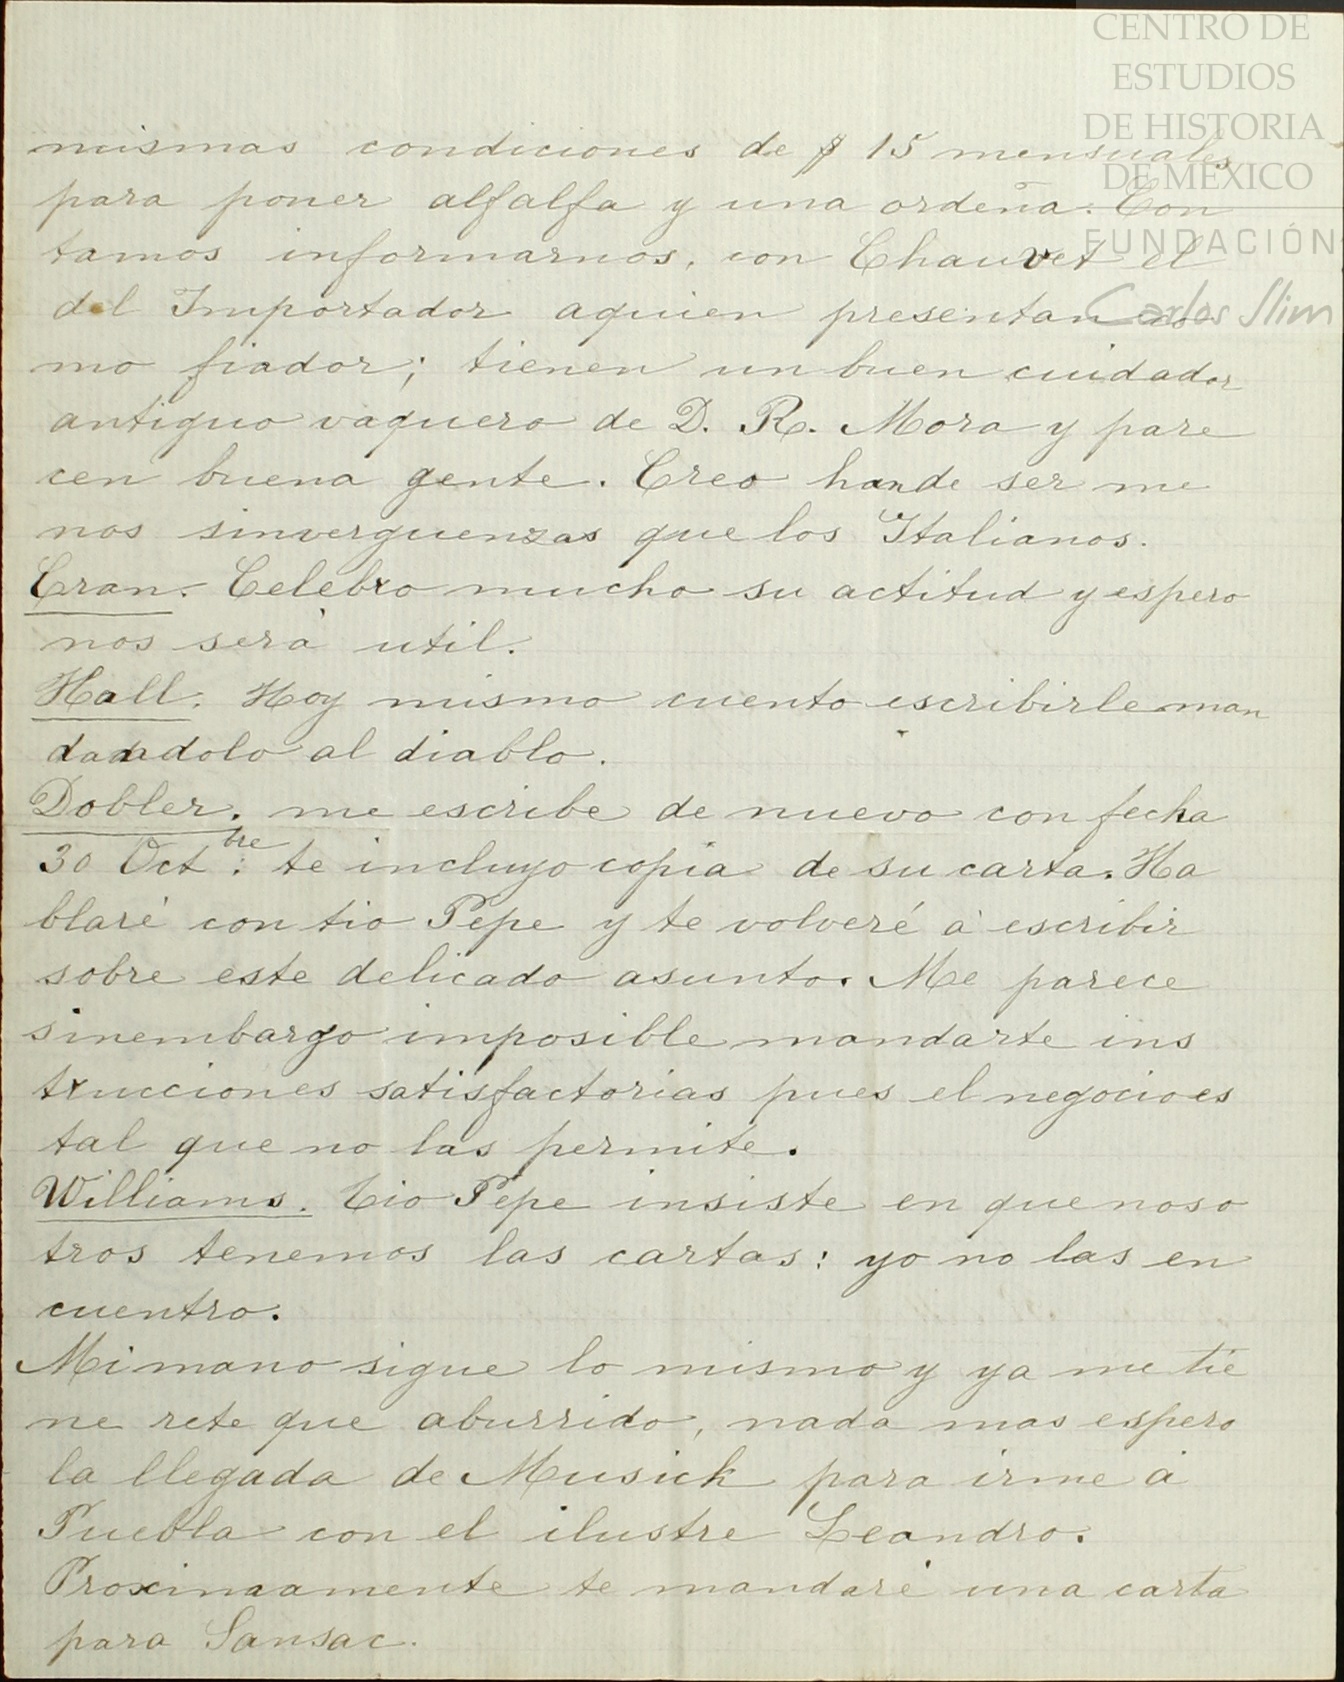 CENTRO DE
ESTUDIOS
DE HISTORIA
DE MÉXICO
FUNDACIÓN
Carlos Slim
mismas condiciones de $ 15 mensuales
para poner alfalfa y una ordeña. Con
tamos informarnos, con Chauvet el
del Importador aquien presentan co
mo fiador; tienen un buen cuidador
antiguo vaquero de D. R. Mora y pare
cen buena gente. Creo hande ser me
nos sinverguenzas que los Italianos.
Cran. Celebro mucho su actitud y espero
nos será util.
Hall. Hoy mismo cuento escribirle man
dandolo al diablo.
Dobler. me escribe de nuevo con fecha
30 Octbre: te incluyo copia de su carta. Ha
blaré con tio Pepe y te volveré á escribir
sobre este delicado asunto. Me parece
sinembargo imposible mandarte ins
trucciones satisfactorias pues el negocio es
tal que no las permite.
Williams. Tio Pepe insiste en que noso
tros tenemos las cartas: yo no las en
cuentro.
Mi mano sigue lo mismo y ya me tie
ne rete que aburrido, nada mas espero
la llegada de Musick para irme á
Puebla con el ilustre Leandro.
Proximamente te mandaré una carta
para Sansac.